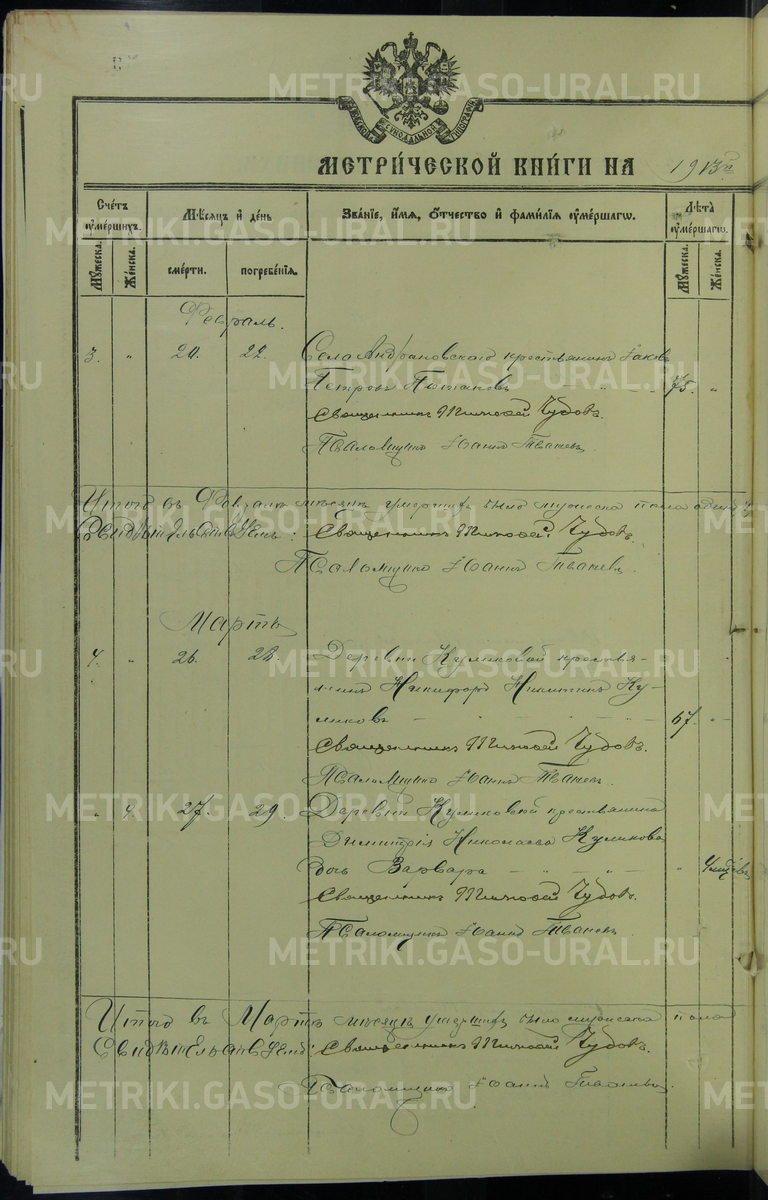 МЕТРИ́ЧЕСКОЙ КНИ́ГИ НА 1913 й
Счетъ ᲂумершихъ.
Мѣсяцъ и день
Зва́нїе, и́мя, О́тчество и фами́лїя ᲂуме́ршагѡ.
Лѣта ᲂуме́ршагѡ.
Мꙋжеска. Же́нска. сме́рти. погребе́нїѧ. Мꙋжеска. Же́нска.
Февраль.
3. „ 20. 22. Села Андроновскаго крестьянинъ Iаковъ
Петровъ Потаповъ 75. „
Священникъ Тимофей Чудовъ.
Псаломщикъ Iоаннъ
Итого въ Февралѣ мѣсяцѣ умершихъ было мужеска пола
Свидѣтельствуемъ: Священникъ Тимофей Чудовъ.
Псаломщикъ Iоаннъ
Мартъ
4. „ 26. 28. Деревни Куликовой крестья-
нинъ Никифоръ Никитинъ Ку-
ликовъ 67. „
Священникъ Тимофей Чудовъ.
Псаломщикъ Iоаннъ
„ 4. 27. 29. Деревни Куликовой крестьянина
Димитрія Николаева Куликова
дочь Варвара „
Священникъ Тимофей Чудовъ.
Псаломщикъ Iоаннъ
Итого въ Мартѣ мѣсяцѣ умершихъ было мужеска пола
Свидѣтельствуемъ: Священникъ Тимофей Чудовъ.
Псаломщикъ Iоаннъ
METRIKI.GASO-URAL.RU